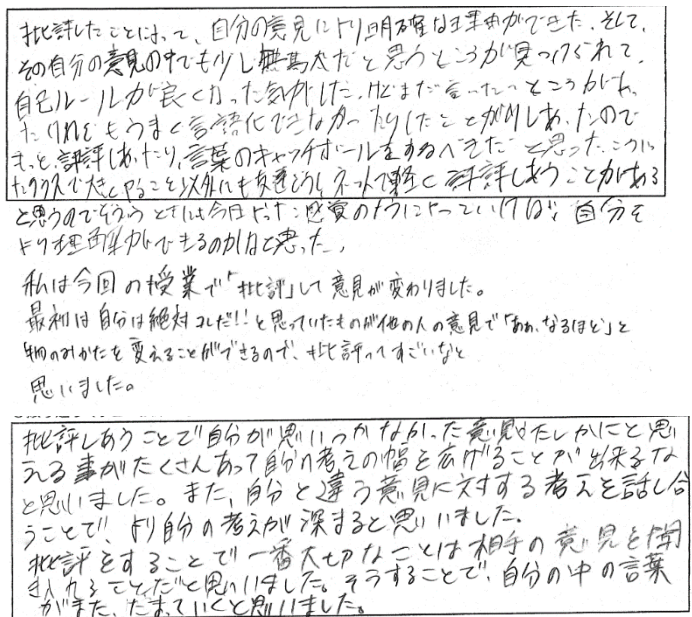 批評したことによって、自分の意見により明確な理由ができた。そして、
その自分の意見の中でも少し無駄だと思うところが見つけられて、
自己ルールが良くなった気がした。けどまだ言ったっところがわ
たりとをもうまく言語化できなかったりしたことがりしあったので
もっと評評しあったり、言葉のキャッチボールをするべきだと思った。こうい
たクラスで大きくやること以外にも友達どうし、ネットで軽く評評しあうことがある
と思うのでそういうときにも今日やった感覚のようにやっていければ、自分を
より理解ができるのかなと思った。
私は今回の授業で「批評」して意見が変わりました。
最初は自分は絶対コレだ!!と思っていたものが他の人の意見で「あぁ、なるほど」と
物のみかたを変えることができるので、批評ってすごいなと
思いました。
批評しあうことで自分が思いつかなかった意見やたしかにと思
える事がたくさんあって自分の考えの幅を広げることが出来るな
と思いました。また、自分と違う意見に対する考えを話し合
うことで、より自分の考えが深まると思いました。
批評をすることで一番大切なことは相手の意見を聞
き入れることだと思いました。そうすることで、自分の中の言葉
がまた、たまっていくと思いました。